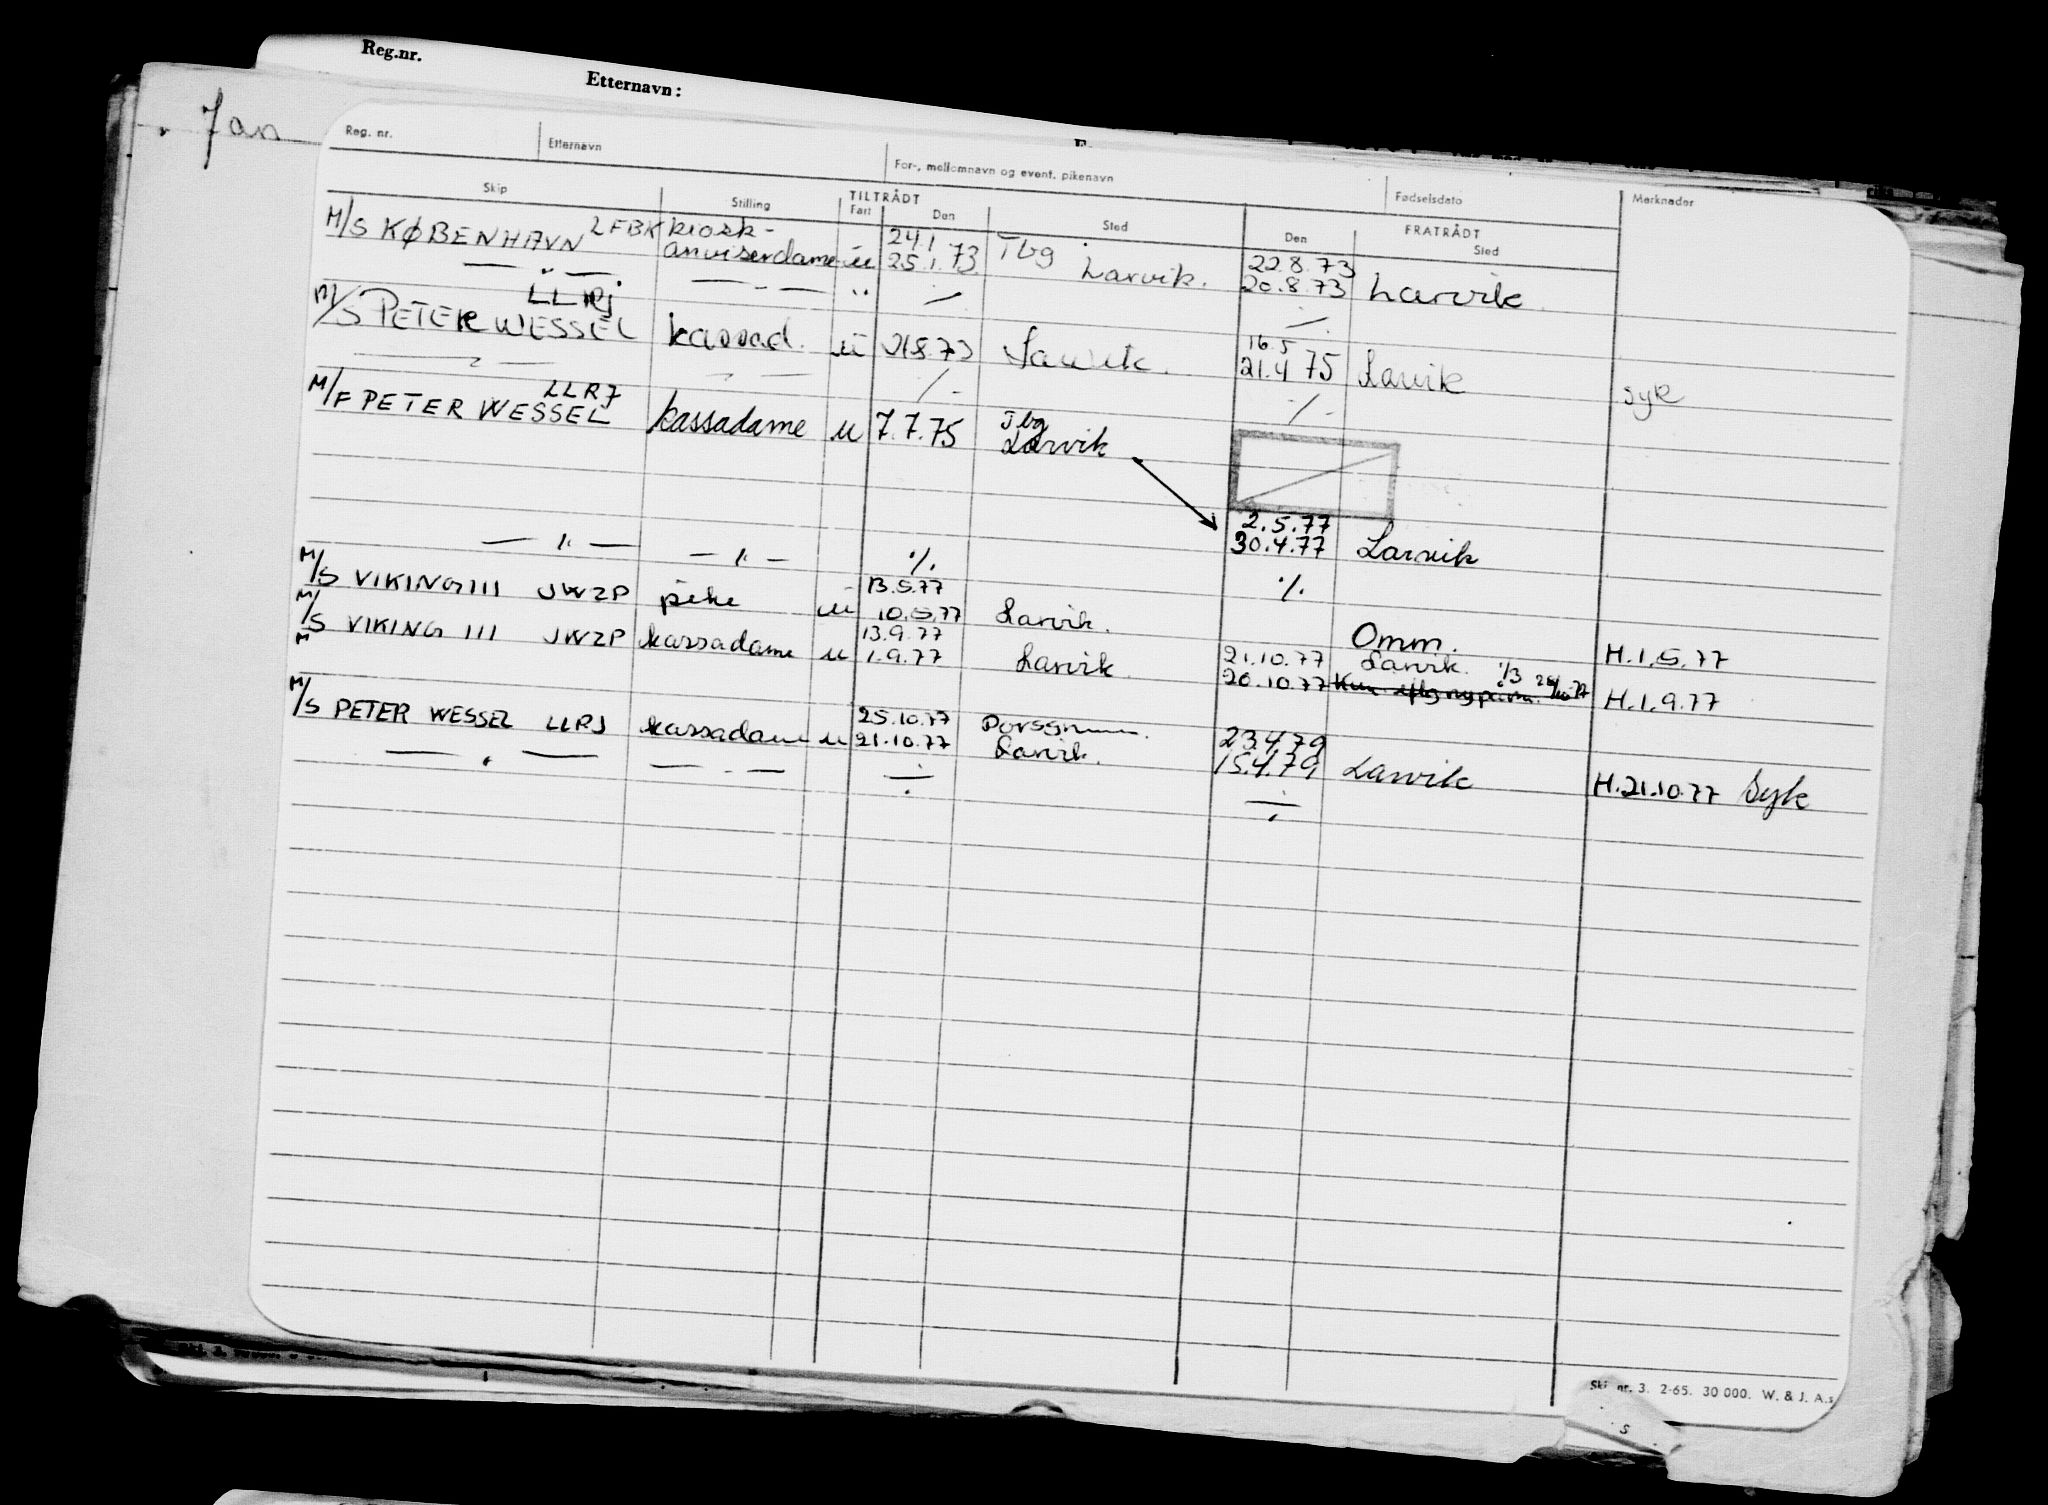 Reg.nr.
Etternavn:
Jan
Reg. nr. Etternavn For-, mellomnavn og event. pikenavn Fødselsdato Merknader
Skip Stilling TILTRÅDT FRATRÅDT
Fart Den Sted Den Sted
M/S KØBENHAVN LFBK kiosk- 24.1 Tbg 22.8.73
anviserdame u 25.1.73 Larvik. 20.8.73 Larvik.
— " — — " — " ./. ./.
LLRJ 16.5
M/S PETER WESSEL kassad. u 21.8.73 Larvik. 21.4 75 Larvik syk
— " — — " — ./. ./.
LLRJ Tbg
M/F PETER WESSEL kassadame u 7.7.75 Larvik
2.5.77
30.4.77 Larvik
— " — — " — ./. ./.
13.5.77
M/S VIKING III JWZP pike u 10.5.77 Larvik. Omm. H.1.5.77
13.9.77 21.10.77 Larvik.
M/S VIKING III JWZP kassadame u 1.9.77 Larvik. 20.10.77 H.1.9.77
M
25.10.77 Porsgrunn. 23.4.79
M/S PETER WESSEL LLRJ kassadame u 21.10.77 Larvik. 15.4.79 Larvik H.21.10.77 Syk
— " — — " — ./. ./.
Skj. nr. 3. 2-65. 30 000. W. & J. A.s